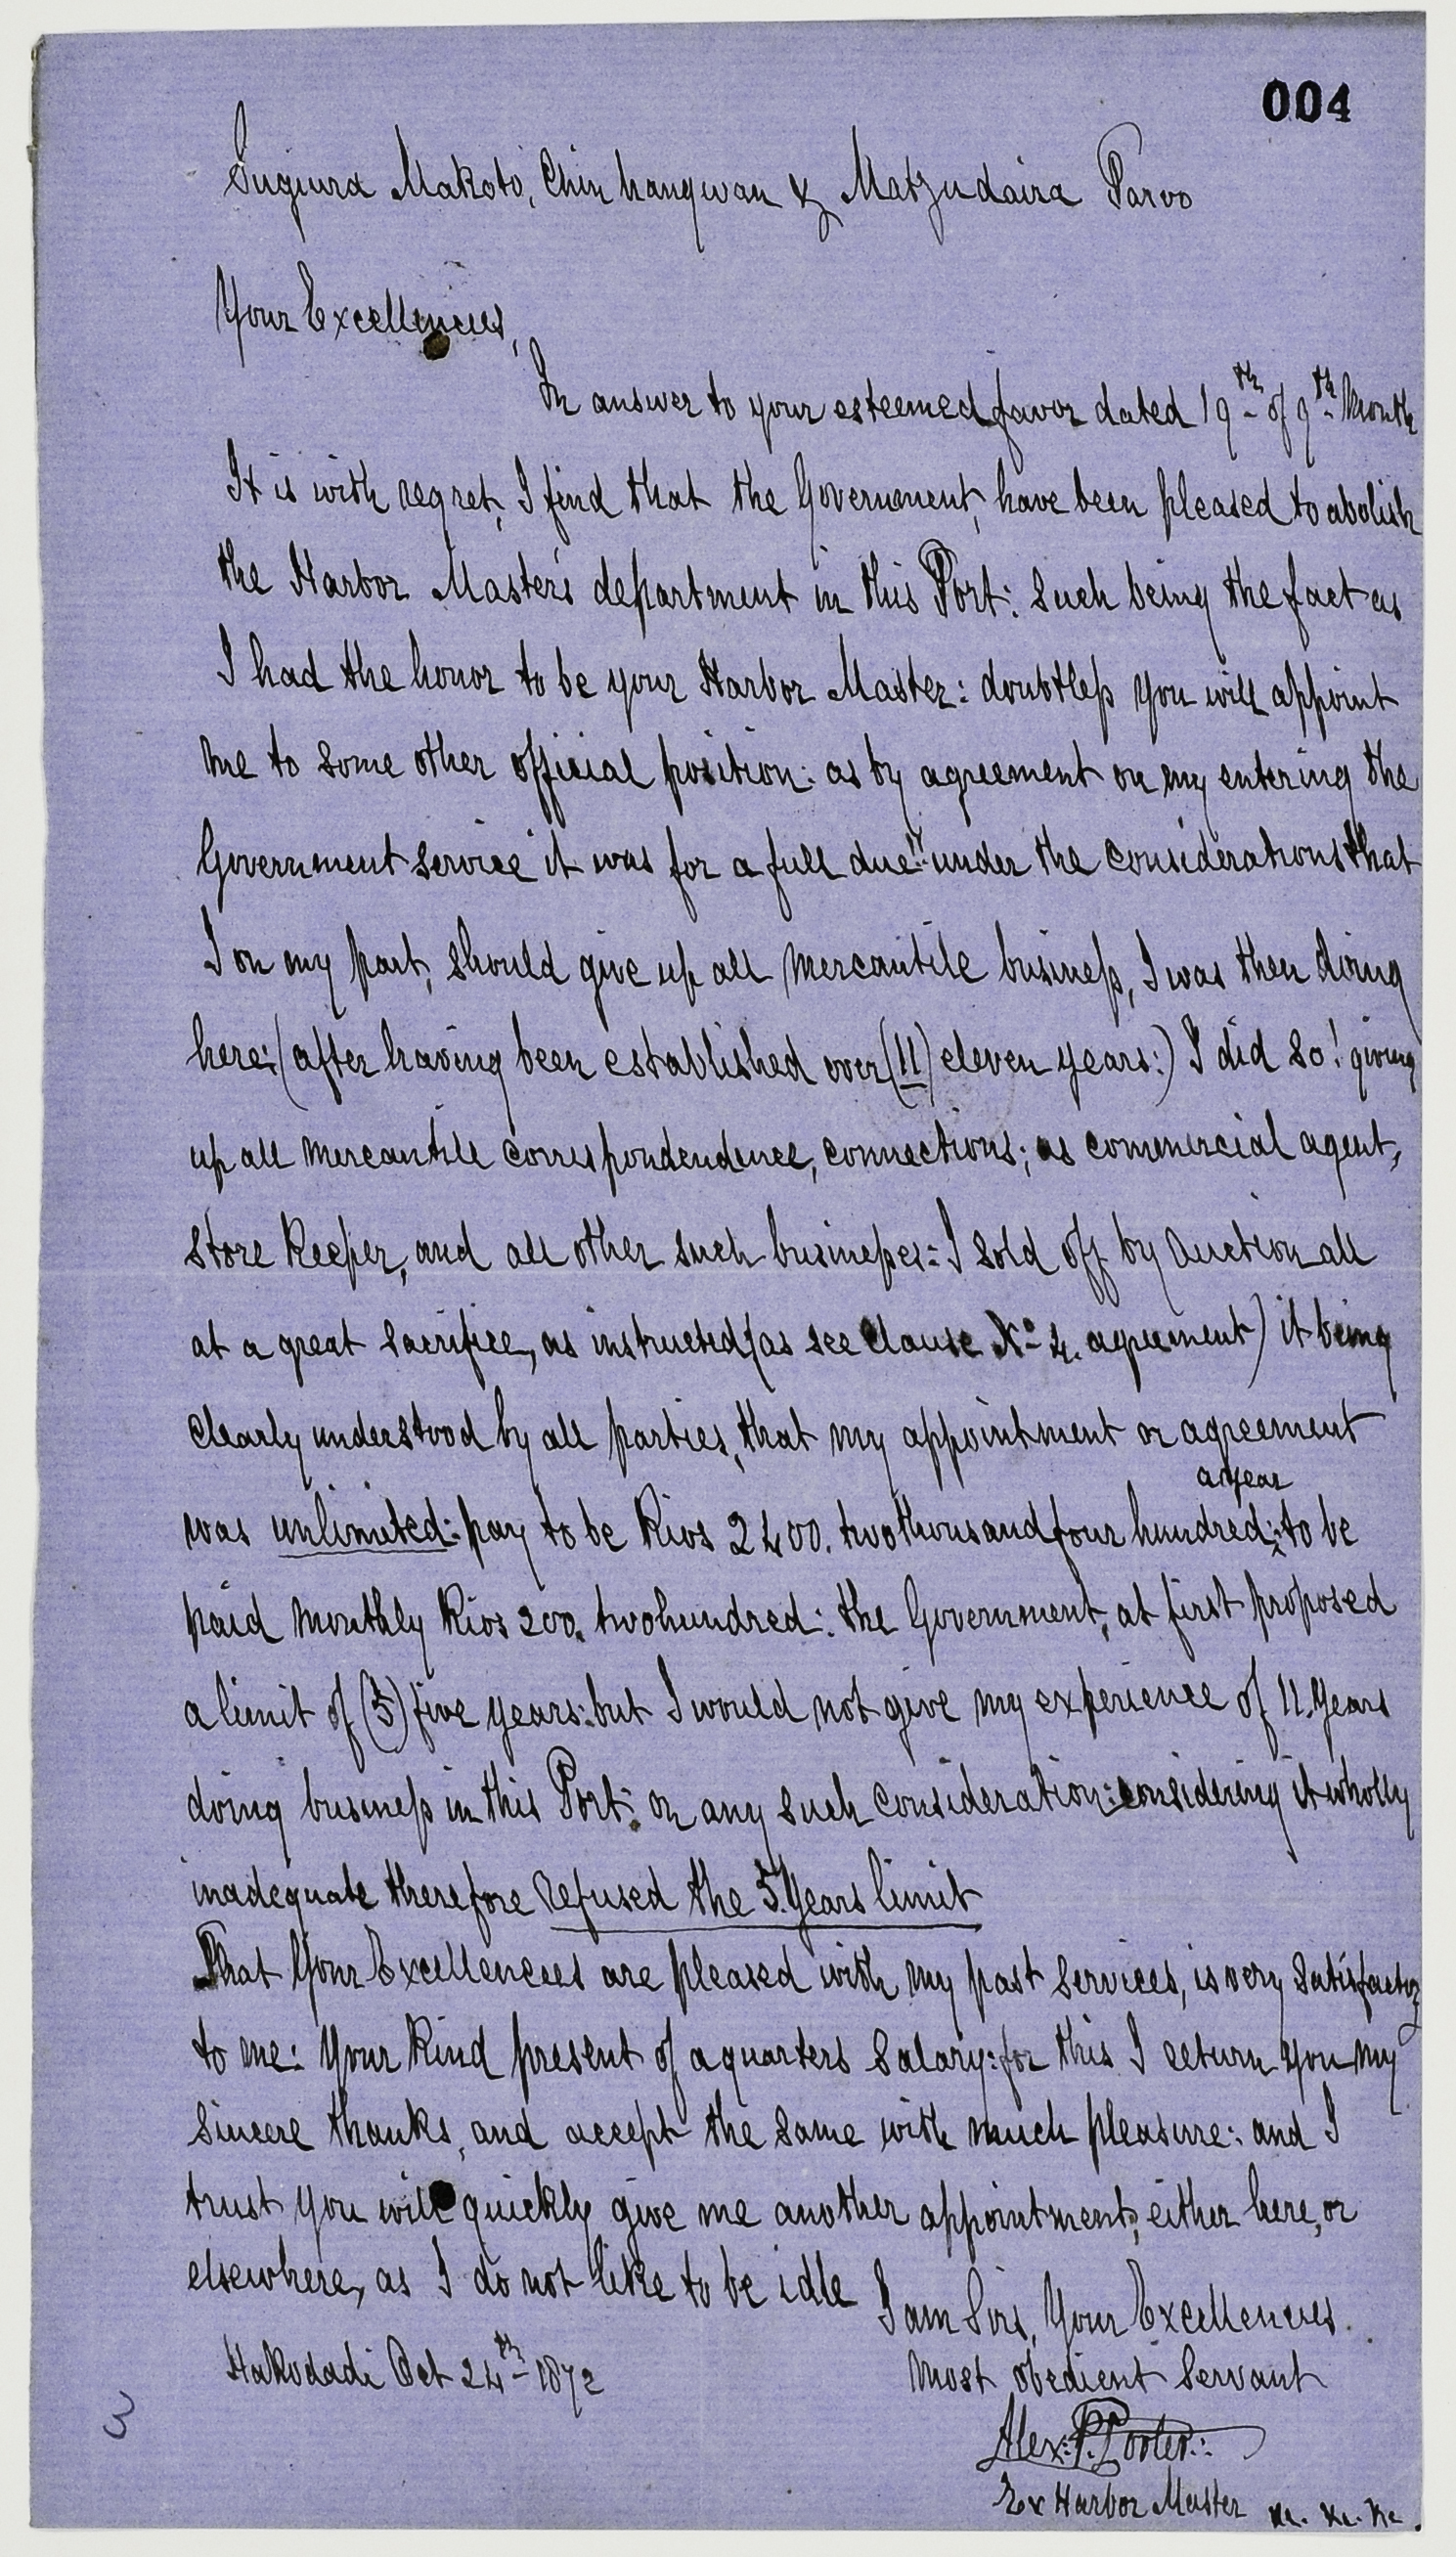 004
Sugiura Makoto, Chin hangwan & Matzudaira Parvo
Your Excellencies,
In answer to your esteemed favor dated 19th of 9th Month
It is with regret, I find that the Government, have been pleased to abolish
the Harbor Master's department in this Port: Such being the fact as
I had the honor to be your Harbor Master: doubtless you will appoint
me to some other official position: as by agreement on my entering the
Government service it was for a full due!! under the considerations that
I on my part, should give up all mercantile business, I was then doing
here: (after having been established over (11) eleven years:) I did so! giving
up all mercantile correspondendence, connections; as commercial agent,
store keeper, and all other such businesses: I sold off by Auction all
at a great sacrifice, as instructed (as see Clause No 4. agreement) it being
clearly understood by all parties, that my appointment or agreement
a year
was unlimited: pay to be Rios 2400. two thousand four hundred: to be
paid monthly Rios 200. two hundred: the Government, at first proposed
a limit of (5) five years: but I would not give my experience of 11 years
doing business in this Port: on any such consideration: considering it wholly
inadequate therefore refused the 5 years limit
That Your Excellencies are pleased with my past services, is very satisfactory
to me: Your kind present of a quarters salary: for this I return you my
sincere thanks, and accept the same with much pleasure: and I
trust you will quickly give me another appointment, either here, or
elsewhere, as I do not like to be idle
I am Sirs, Your Excellencies
Hakodadi Oct 24th 1872
most obedient Servant
Alex: P. Porter:
Ex Harbor Master &c. &c. &c.
3